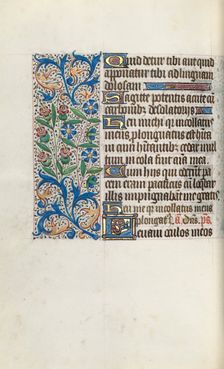 Quid detur tibi aut quid
apponatur tibi ad linguam
dolosam
Sagitte potentis acute cū
carbonib desolatorijs
Heu michi qr incolatus
meus plongatus est hitaui
cū hitantib cedar ml
tum incola fuit aīa mea
Cum hijs qui oderūt pa
cem eram pacificus cū loqbar
illis impugnabāt me gratis
Heu me qr incolatus meus
plongat ē Añ ps
Leuaui oculos meos